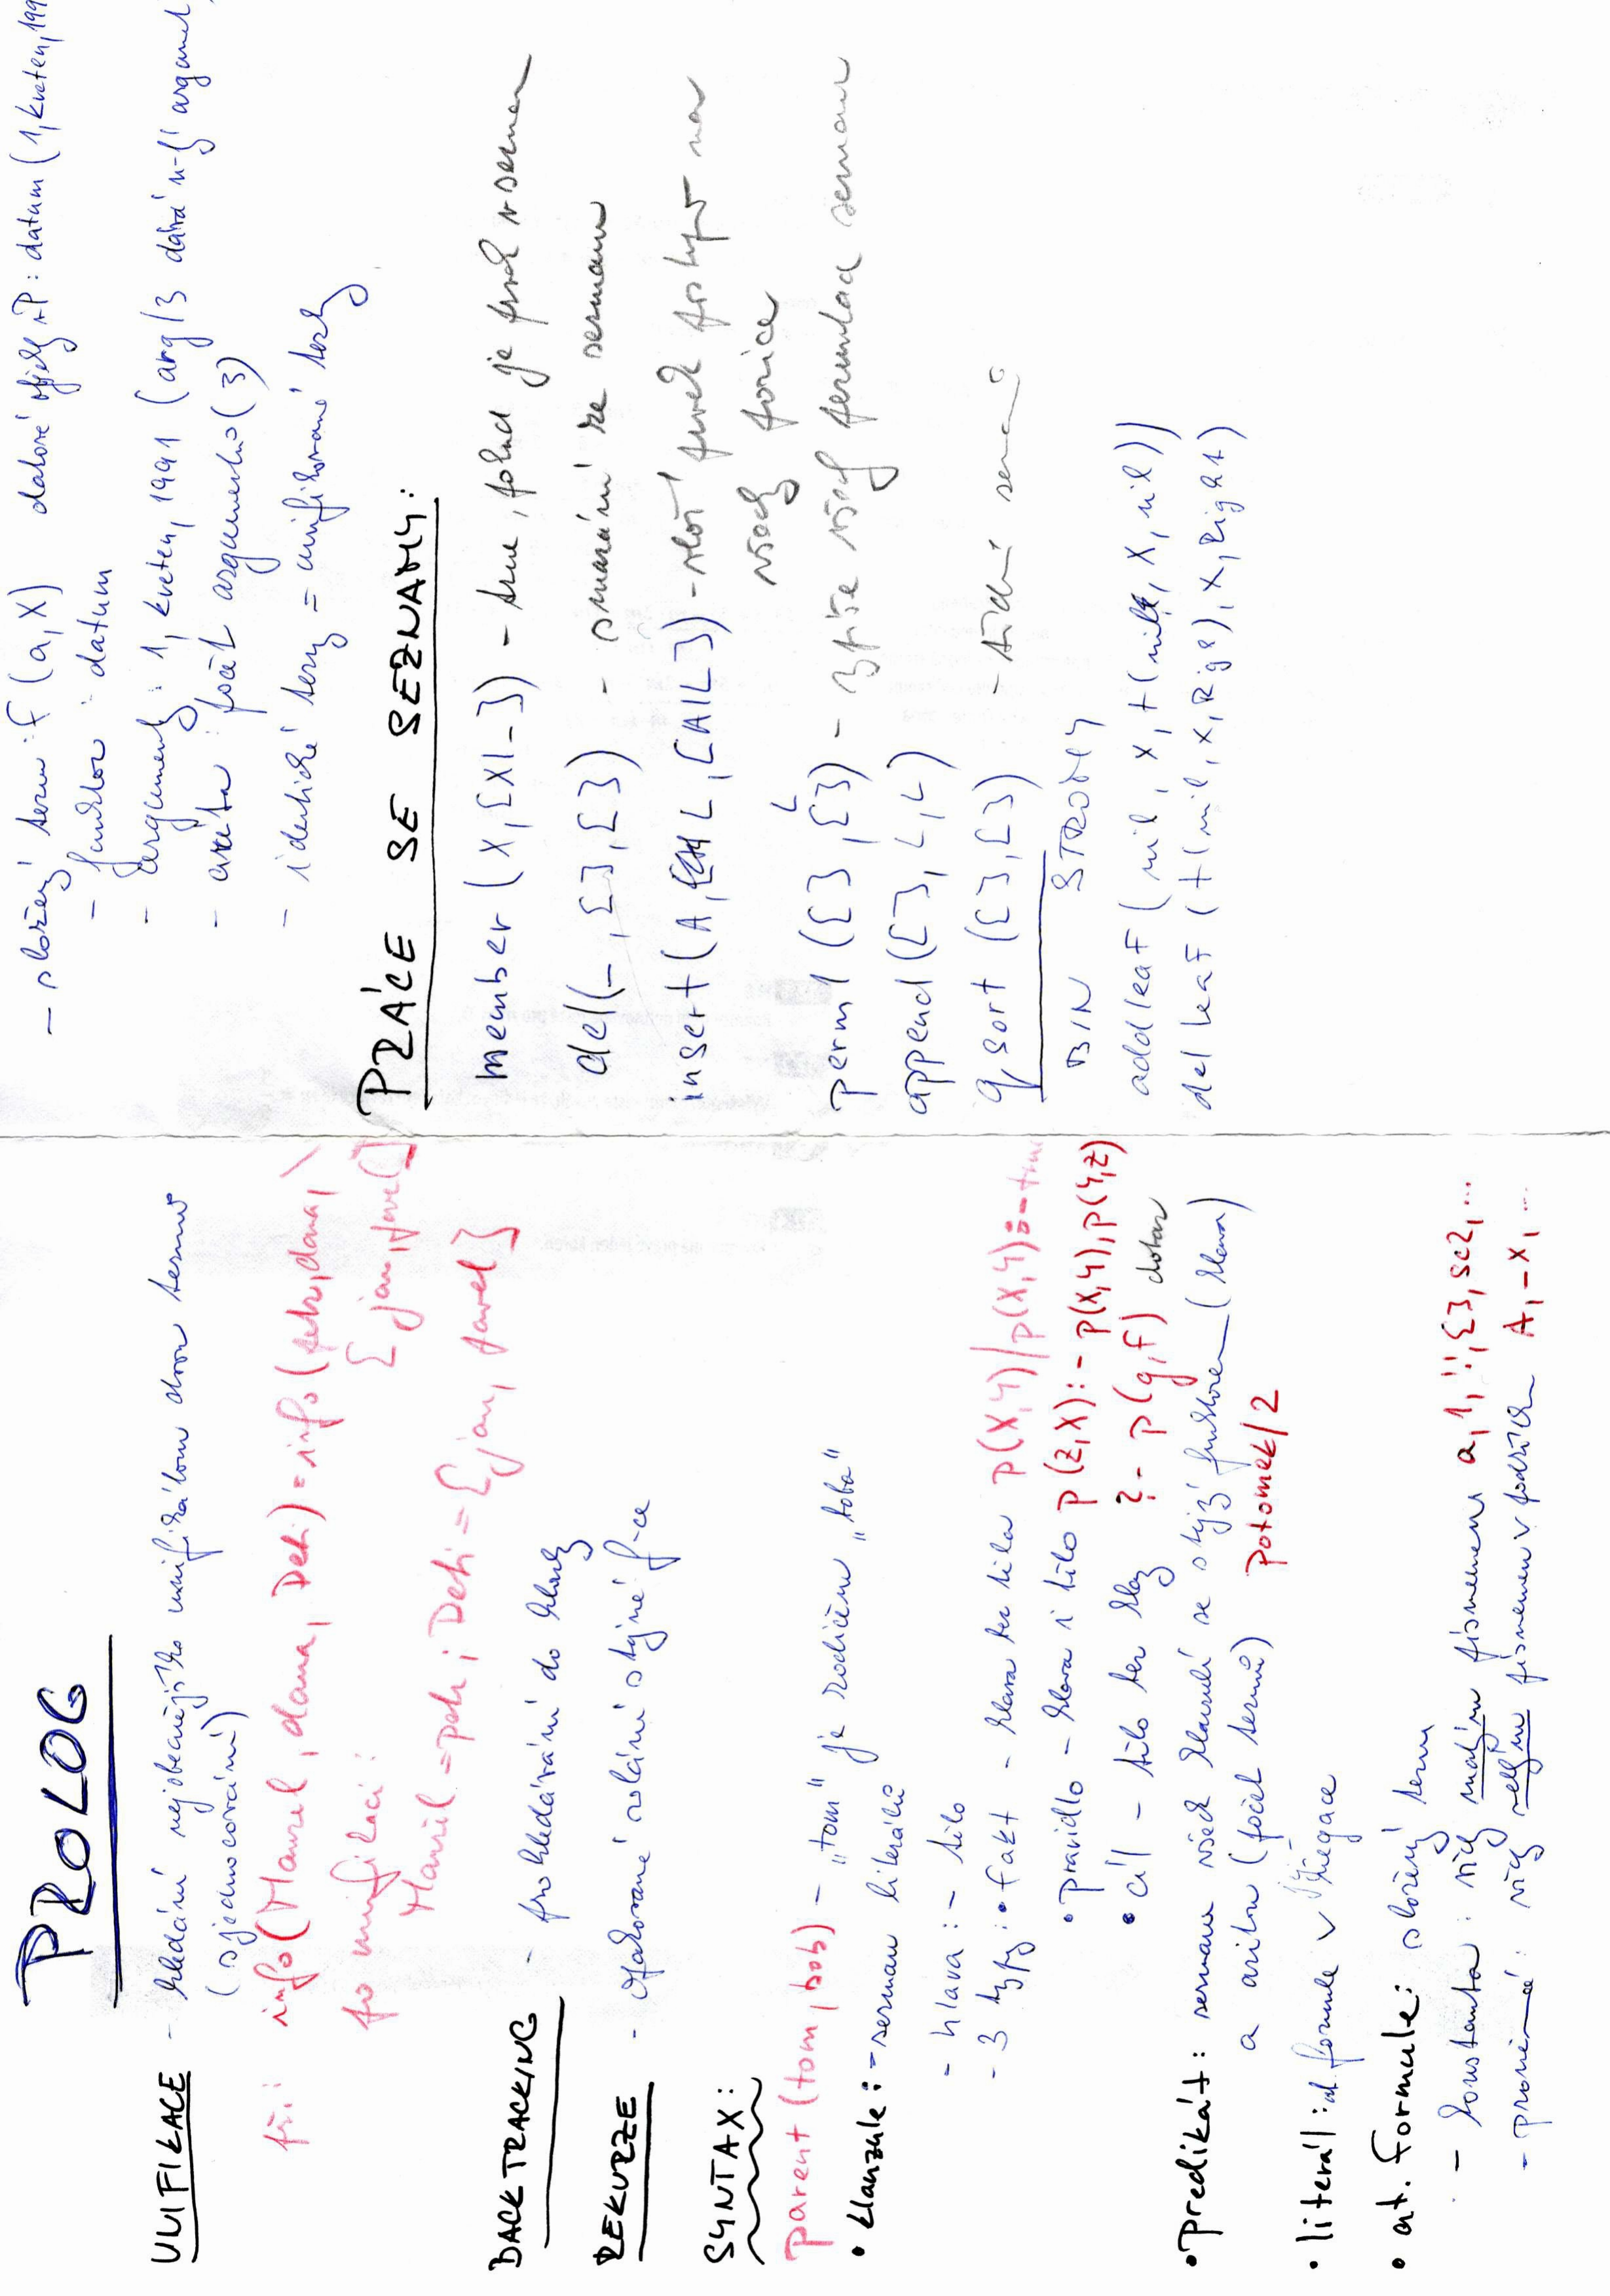 PROLOG
UNIFIKACE - hledání nejobecnějšího unifikátoru dvou termů
(sjednocování)
př.: info(Manzel, dana, Deti) = info(petr, dana, \
[jan, pavel])
po unifikaci:
Manzel = petr; Deti = [jan, pavel]
BACKTRACKING - prohledávání do hloubky
REKURZE - opakované volání stejné f-ce
SYNTAX:
parent(tom, bob) - "tom" je rodičem "boba"
• klauzule: - seznam literálů
- hlava :- tělo
- 3 typy: • fakt - hlava bez těla p(X,Y) / p(X,Y) :- true
• pravidlo - hlava i tělo p(z,X) :- p(X,Y), p(Y,z)
• cíl - tělo bez hlavy ?- p(g,f) dotaz
• Predikát: seznam všech klauzulí se stejným funktorem (hlavou)
a aritou (počet termů) potomek/2
• literál: at. formule v negace
• at. formule: složený term
- konstanta: vždy malým písmenem a, 1, '', [], sc2, ...
- proměnné: vždy velkým písmenem v podtržítkem A, _x, ...
- složený term: f(a,X) datové objekty v P: datum(1, kveten, 199
- funktor: datum
- argumenty: 1, kveten, 1991 (arg/3 dává n-tý argument
- arita: počet argumentů (3)
- identické termy = unifikované vždy
PRÁCE SE SEZNAMY:
member(X,[X|_]) - true, pokud je prvek v seznamu
del(_,[],[]) - smazání ze seznamu
insert(A, L,[A|L]) - vloží prvek postupně na
všechny pozice
perm1([],[]) - zjistí všech permutací seznamu
L
append([],L,L)
qsort([],[]) - třídí
BIN STROMY
addleaf(nil, X, t(nil, X, nil))
delleaf(t(nil, X, Right), X, Right)